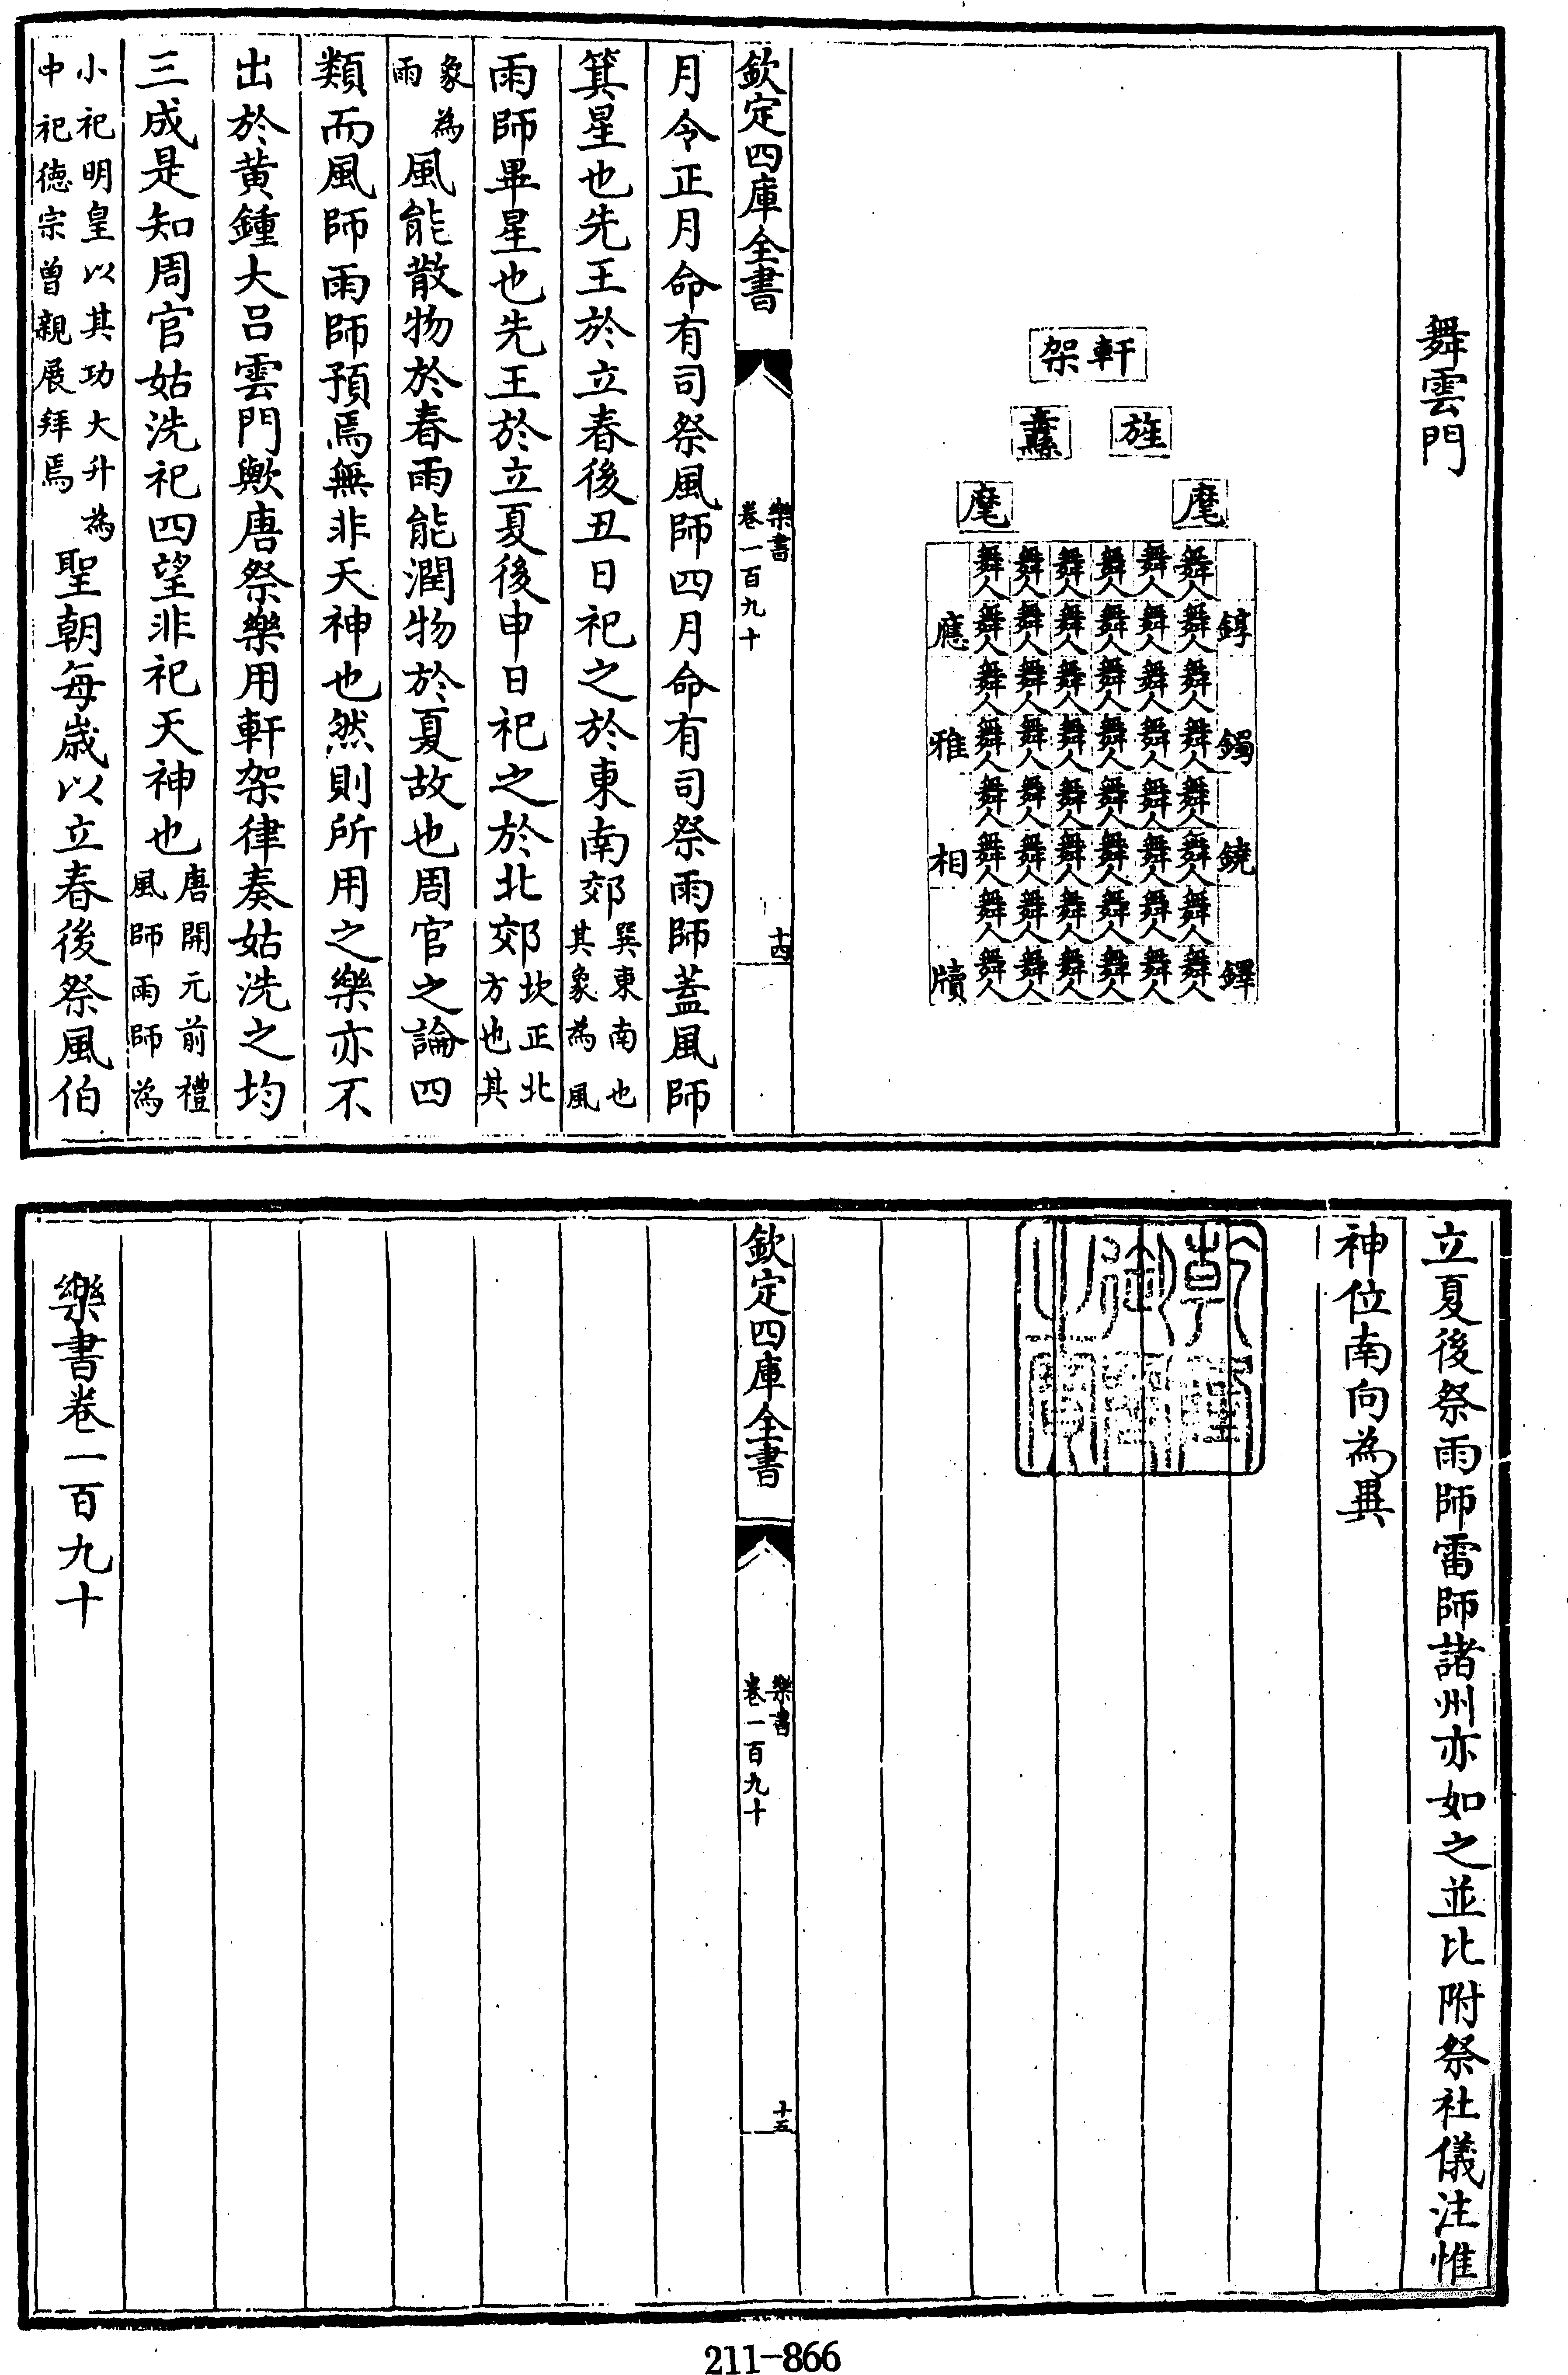 舞雲門
軒架
旌 纛
麾 麾
錞 舞人 舞人 舞人 舞人 舞人 舞人 應
舞人 舞人 舞人 舞人 舞人 舞人
舞人 舞人 舞人 舞人 舞人 舞人
鐲 舞人 舞人 舞人 舞人 舞人 舞人 雅
舞人 舞人 舞人 舞人 舞人 舞人
鐃 舞人 舞人 舞人 舞人 舞人 舞人 相
舞人 舞人 舞人 舞人 舞人 舞人
鐸 舞人 舞人 舞人 舞人 舞人 舞人 牘
欽定四庫全書
樂書
卷一百九十
十四
月令正月命有司祭風師四月命有司祭雨師蓋風師
箕星也先王於立春後丑日祀之於東南郊巽東南也其象為風
雨師畢星也先王於立夏後申日祀之於北郊坎正北方也其
象為雨風能散物於春雨能潤物於夏故也周官之論四
類而風師雨師預焉無非天神也然則所用之樂亦不
出於黄鍾大吕雲門歟唐祭樂用軒架律奏姑洗之均
三成是知周官姑洗祀四望非祀天神也唐開元前禮風師雨師為
小祀明皇以其功大升為中祀德宗曾親展拜焉聖朝每歲以立春後祭風伯
立夏後祭雨師雷師諸州亦如之並比附祭社儀注惟
神位南向為異
乾隆御覽之寶
欽定四庫全書
樂書
卷一百九十
十五
樂書卷一百九十
211-866